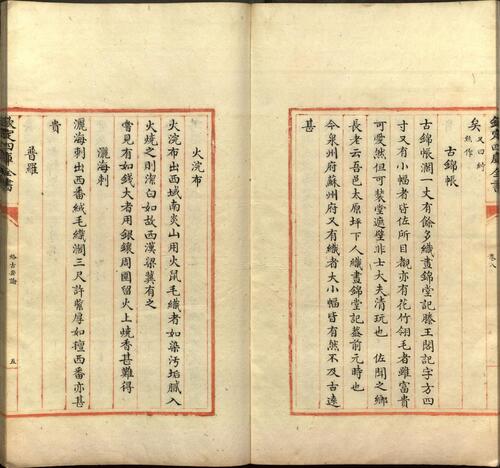 欽定四庫全書
卷八
矣又曰紵
絲作
古錦帳
古錦帳濶一丈有餘多織畫錦堂記滕王閣記字方四
寸又有小幅者皆佐所目覩亦有花竹翎毛者雖富貴
可愛然但可裝堂遮壁非士大夫清玩也　佐聞之鄉
長老云吾邑太原坪下人織畫錦堂記葢前元時也
今泉州府蘇州府又有織者大小幅皆有然不及古遠
甚
火浣布
火浣布出西域南炎山用火鼠毛織者如染汚垢膩入
火燒之則潔白如故西漢梁冀有之
嘗見有如錢大者用銀鑲周圍留火上燒香甚難得
灑海剌
灑海剌出西番絨毛織濶三尺許緊厚如氊西番亦甚
貴
普羅
欽定四庫全書
格古要論
五